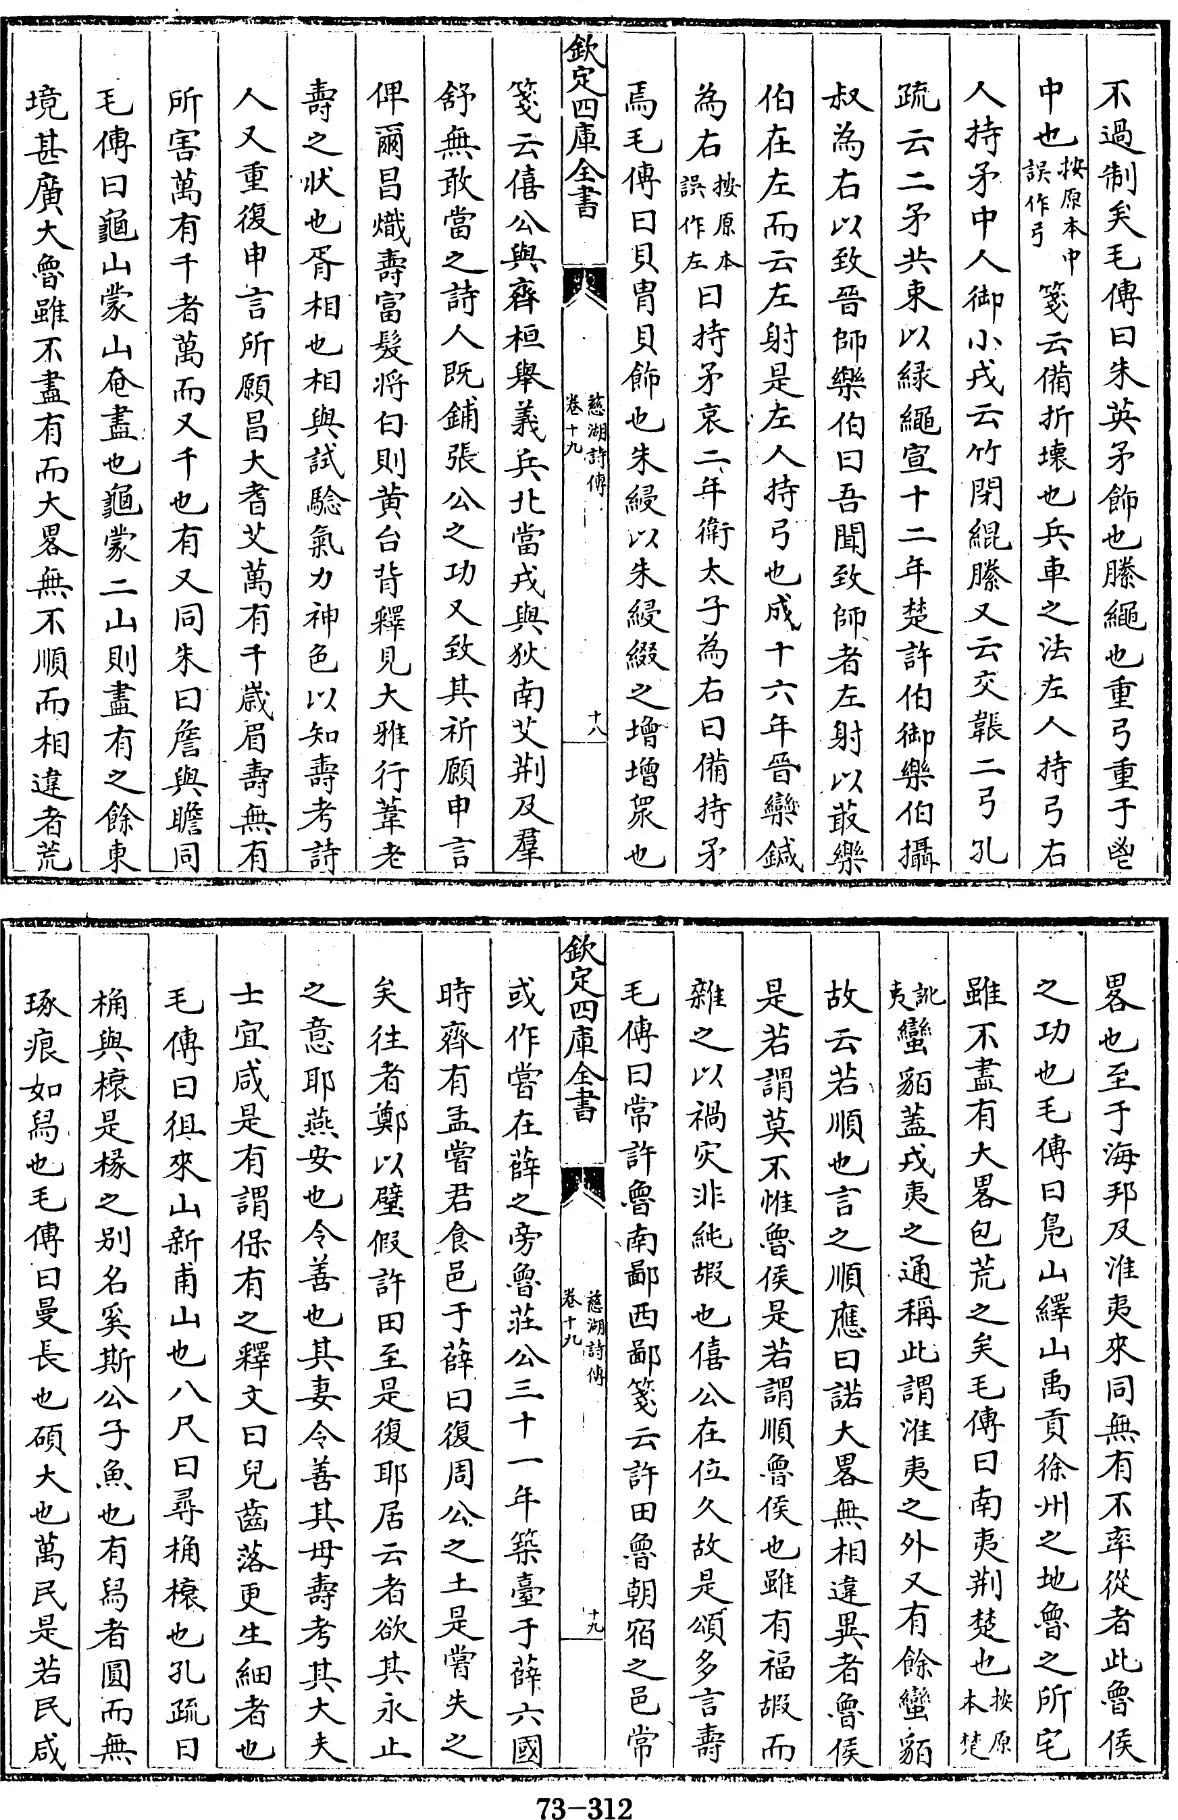 不過制矣毛傳曰朱英矛飾也縢繩也重弓重于鬯
中也按原本中誤作弓箋云備折壞也兵車之法左人持弓右
人持矛中人御小戎云竹閉緄縢又云交韔二弓孔
疏云二矛共束以綠繩宣十二年楚許伯御樂伯攝
叔為右以致晉師樂伯曰吾聞致師者左射以菆樂
伯在左而云左射是左人持弓也成十六年晉欒鍼
為右按原本誤作左曰持矛哀二年衛太子為右曰備持矛
焉毛傳曰貝冑貝飾也朱綅以朱綅綴之增增衆也
欽定四庫全書
慈湖詩傳
卷十九
十八
箋云僖公與齊桓舉義兵北當戎與狄南艾荆及羣
舒無敢當之詩人既鋪張公之功又致其祈願申言
俾爾昌熾壽富髮將白則黄台背釋見大雅行葦老
壽之狀也胥相也相與試騐氣力神色以知壽考詩
人又重復申言所願昌大耆艾萬有千歲眉壽無有
所害萬有千者萬而又千也有又同朱曰詹與瞻同
毛傳曰龜山蒙山奄盡也龜蒙二山則盡有之餘東
境甚廣大魯雖不盡有而大畧無不順而相違者荒
畧也至于海邦及淮夷來同無有不率從者此魯侯
之功也毛傳曰鳧山繹山禹貢徐州之地魯之所宅
雖不盡有大畧包荒之矣毛傳曰南夷荆楚也按原本楚
訛夷蠻貊蓋戎夷之通稱此謂淮夷之外又有餘蠻貊
故云若順也言之順應曰諾大畧無相違異者魯侯
是若謂莫不惟魯侯是若謂順魯侯也雖有福嘏而
雜之以禍灾非純嘏也僖公在位久故是頌多言壽
毛傳曰常許魯南鄙西鄙箋云許田魯朝宿之邑常
欽定四庫全書
慈湖詩傳
卷十九
十九
或作嘗在薛之旁魯莊公三十一年築臺于薛六國
時齊有孟嘗君食邑于薛曰復周公之土是嘗失之
矣往者鄭以璧假許田至是復耶居云者欲其永止
之意耶燕安也令善也其妻令善其母壽考其大夫
士宜咸是有謂保有之釋文曰兒齒落更生細者也
毛傳曰徂來山新甫山也八尺曰尋桷榱也孔疏曰
桷與榱是椽之别名奚斯公子魚也有舄者圓而無
琢痕如舄也毛傳曰曼長也碩大也萬民是若民咸
73-312